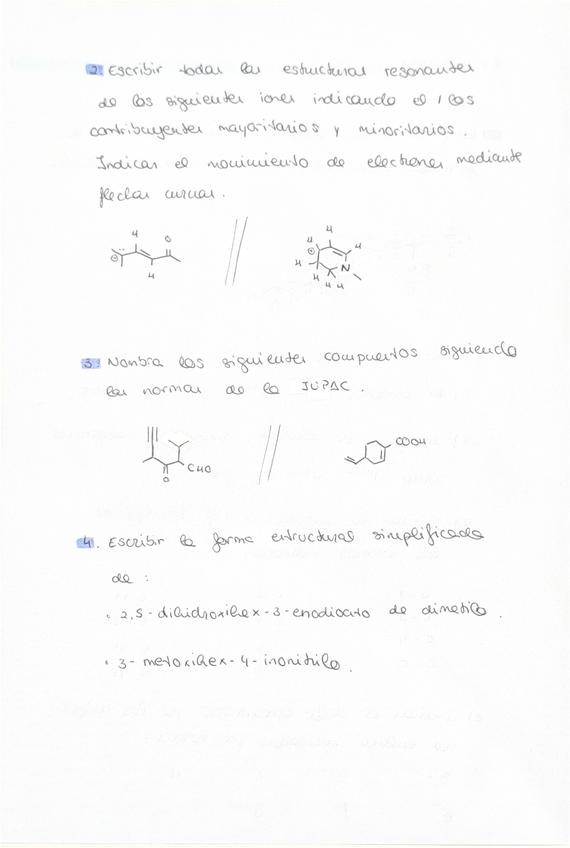 2. Escribir todas las estructuras resonantes
de los siguientes iones indicando el / los
contribuyentes mayoritarios y minoritarios.
Indicar el movimiento de electrones mediante
flechas curvas.
H
O
H
H
H
H
H
N
H
H H
3. Nombra los siguientes compuestos siguiendo
las normas de la IUPAC.
CHO
O
COOH
4. Escribir la forma estructural simplificada
de :
• 2,5-dihidroxihex-3-enodioato de dimetilo.
• 3-metoxihex-4-inonitrilo.